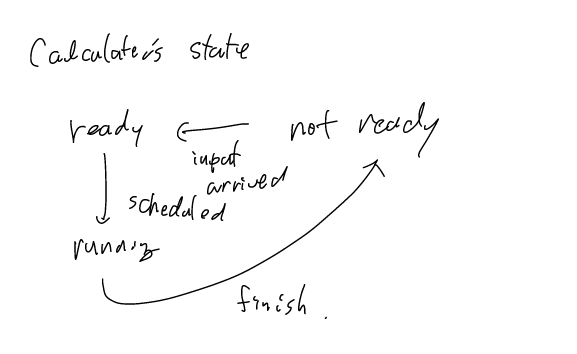 Calculater's state
ready ← not ready
input
arrived
scheduled
running
finish.